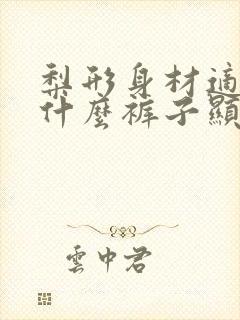 梨形身材適
什麼褲子顯
雲中君